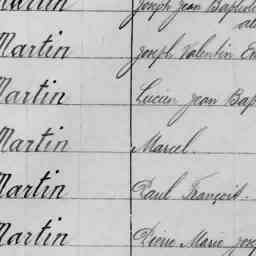 Martin Joseph Jean Baptiste
Martin Joseph Valentin
Martin Lucien Jean Bap
Martin Marcel.
Martin Paul François.
Martin Pierre Marie Jose